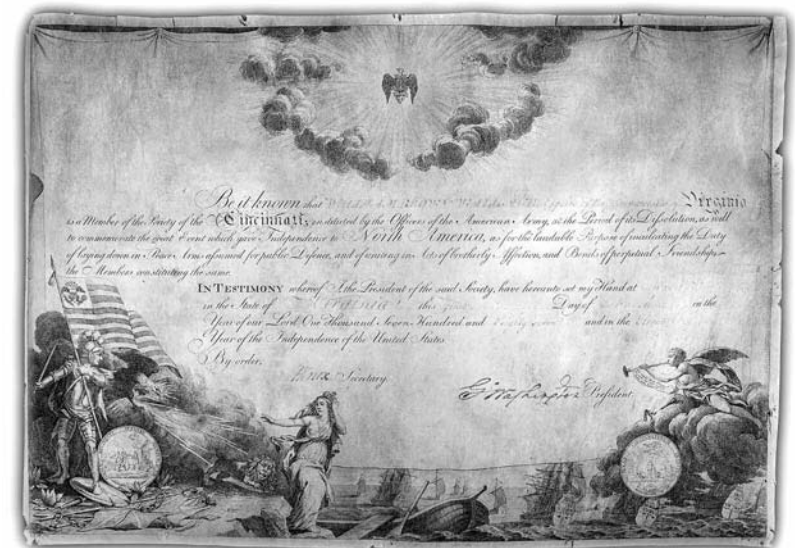 Be it known that Virginia
is a Member of the Society of the Cincinnati, instituted by the Officers of the American Army, at the Period of its Dissolution, as well
to commemorate the great Event which gave Independence to North America, as for the laudable Purpose of inculcating the Duty
of laying down in Peace Arms assumed for public Defence, and of uniting in Acts of brotherly Affection, and Bonds of perpetual Friendship,
the Members constituting the same.
IN TESTIMONY whereof I, the President of the said Society, have hereunto set my Hand at
in the State of this Day of in the
Year of our Lord One Thousand Seven Hundred and and in the
Year of the Independence of the United States.
By order,
Secretary. G. Washington President.